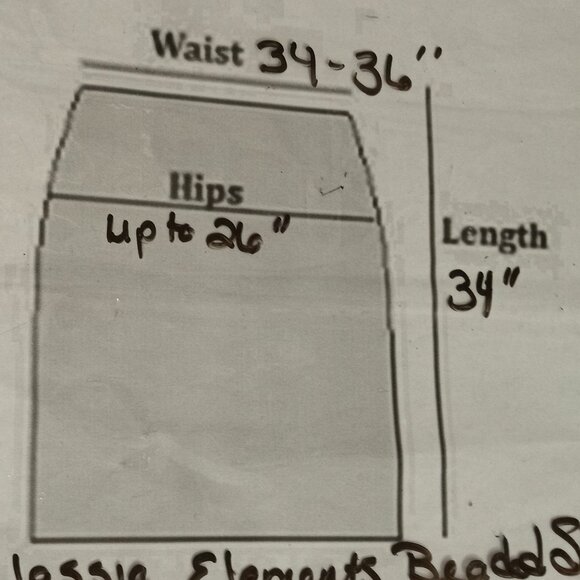 Waist 34-36"
Hips
up to 26"
Length
34"
Elements Beaded